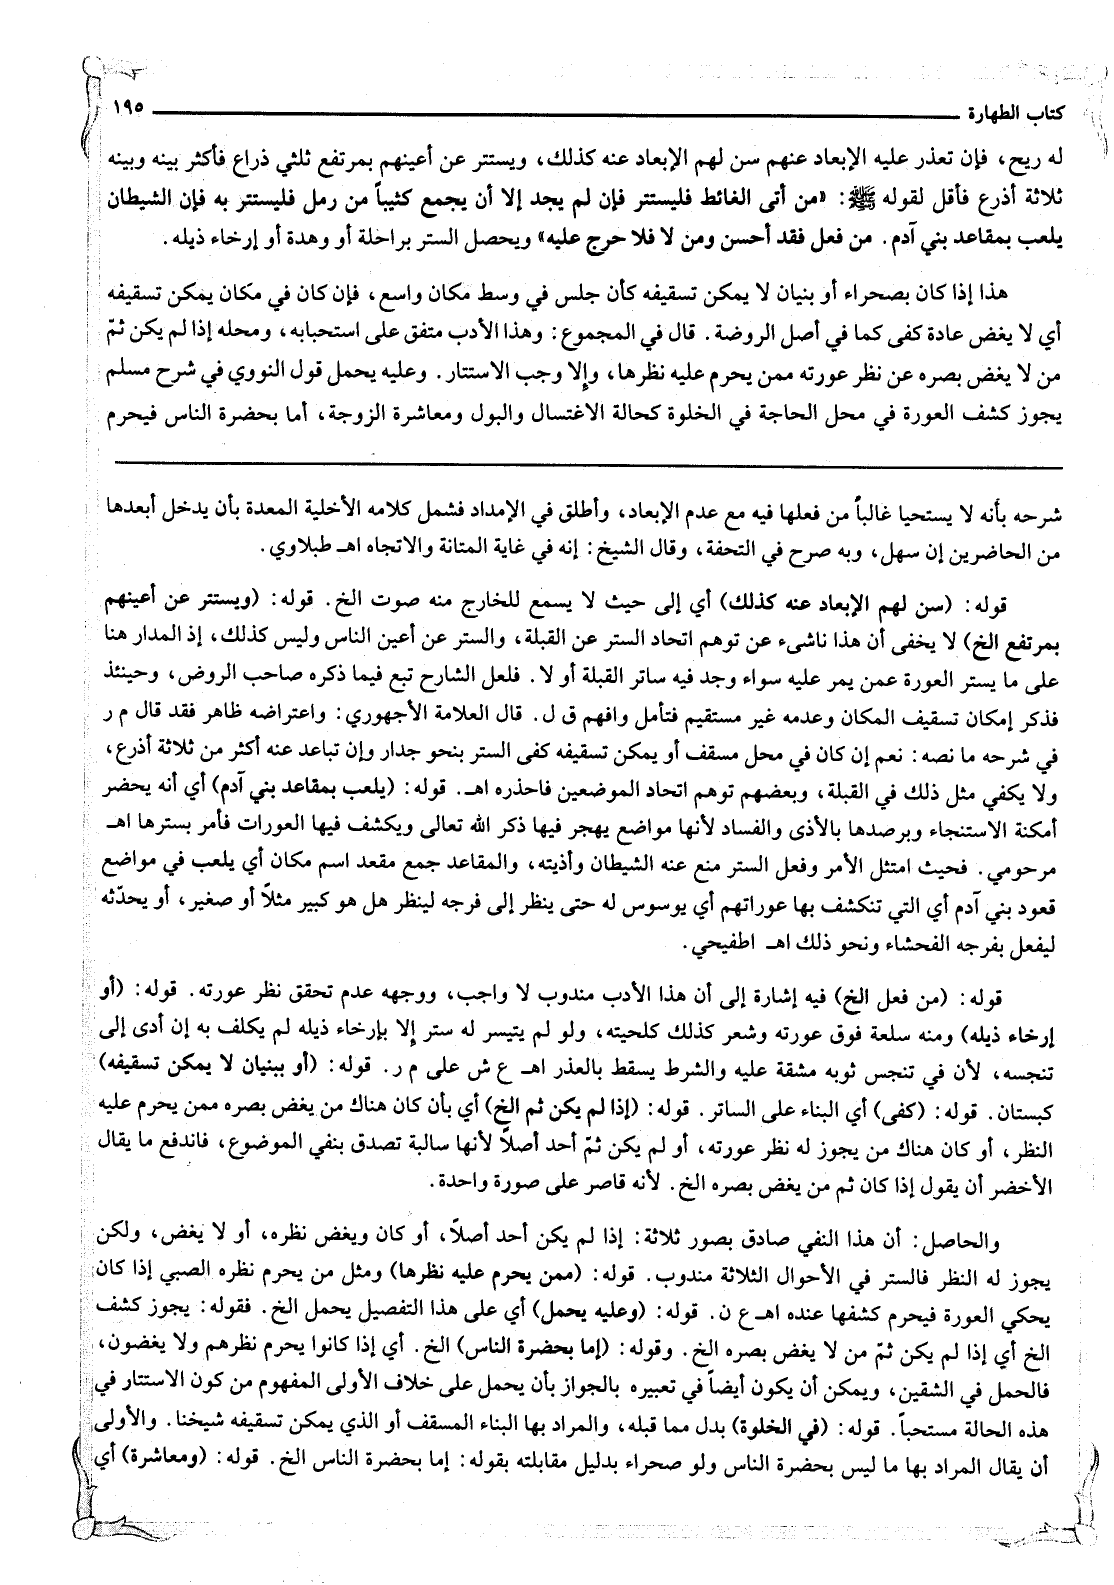 كتاب الطهارة ١٩٥
له ريح، فإن تعذر عليه الإبعاد عنهم سن لهم الإبعاد عنه كذلك، ويستتر عن أعينهم بمرتفع ثلثي ذراع فأكثر بينه وبينه
ثلاثة أذرع فأقل لقوله ﷺ: «من أتى الغائط فليستتر فإن لم يجد إلا أن يجمع كثيباً من رمل فليستتر به فإن الشيطان
يلعب بمقاعد بني آدم. من فعل فقد أحسن ومن لا فلا حرج عليه» ويحصل الستر براحلة أو وهدة أو إرخاء ذيله.
هذا إذا كان بصحراء أو بنيان لا يمكن تسقيفه كأن جلس في وسط مكان واسع، فإن كان في مكان يمكن تسقيفه
أي لا يغض عادة كفى كما في أصل الروضة. قال في المجموع: وهذا الأدب متفق على استحبابه، ومحله إذا لم يكن ثمّ
من لا يغض بصره عن نظر عورته ممن يحرم عليه نظرها، وإلا وجب الاستتار. وعليه يحمل قول النووي في شرح مسلم
يجوز كشف العورة في محل الحاجة في الخلوة كحالة الاغتسال والبول ومعاشرة الزوجة، أما بحضرة الناس فيحرم
شرحه بأنه لا يستحيا غالباً من فعلها فيه مع عدم الإبعاد، وأطلق في الإمداد فشمل كلامه الأخلية المعدة بأن يدخل أبعدها
من الحاضرين إن سهل، وبه صرح في التحفة، وقال الشيخ: إنه في غاية المتانة والاتجاه اهـ طبلاوي.
قوله: (سن لهم الإبعاد عنه كذلك) أي إلى حيث لا يسمع للخارج منه صوت الخ. قوله: (ويستتر عن أعينهم
بمرتفع الخ) لا يخفى أن هذا ناشىء عن توهم اتحاد الستر عن القبلة، والستر عن أعين الناس وليس كذلك، إذ المدار هنا
على ما يستر العورة عمن يمر عليه سواء وجد فيه ساتر القبلة أو لا. فلعل الشارح تبع فيما ذكره صاحب الروض، وحينئذ
فذكر إمكان تسقيف المكان وعدمه غير مستقيم فتأمل وافهم ق ل. قال العلامة الأجهوري: واعتراضه ظاهر فقد قال م ر
في شرحه ما نصه: نعم إن كان في محل مسقف أو يمكن تسقيفه كفى الستر بنحو جدار وإن تباعد عنه أكثر من ثلاثة أذرع،
ولا يكفي مثل ذلك في القبلة، وبعضهم توهم اتحاد الموضعين فاحذره اهـ. قوله: (يلعب بمقاعد بني آدم) أي أنه يحضر
أمكنة الاستنجاء ويرصدها بالأذى والفساد لأنها مواضع يهجر فيها ذكر الله تعالى ويكشف فيها العورات فأمر بسترها اهـ
مرحومي. فحيث امتثل الأمر وفعل الستر منع عنه الشيطان وأذيته، والمقاعد جمع مقعد اسم مكان أي يلعب في مواضع
قعود بني آدم أي التي تنكشف بها عوراتهم أي يوسوس له حتى ينظر إلى فرجه لينظر هل هو كبير مثلاً أو صغير، أو يحدّثه
ليفعل بفرجه الفحشاء ونحو ذلك اهـ اطفيحي.
قوله: (من فعل الخ) فيه إشارة إلى أن هذا الأدب مندوب لا واجب، ووجهه عدم تحقق نظر عورته. قوله: (أو
إرخاء ذيله) ومنه سلعة فوق عورته وشعر كذلك كلحيته، ولو لم يتيسر له ستر إلا بإرخاء ذيله لم يكلف به إن أدى إلى
تنجسه، لأن في تنجس ثوبه مشقة عليه والشرط يسقط بالعذر اهـ ع ش على م ر. قوله: (أو ببنيان لا يمكن تسقيفه)
كبستان. قوله: (كفى) أي البناء على الساتر. قوله: (إذا لم يكن ثم الخ) أي بأن كان هناك من يغض بصره ممن يحرم عليه
النظر، أو كان هناك من يجوز له نظر عورته، أو لم يكن ثمّ أحد أصلاً لأنها سالبة تصدق بنفي الموضوع، فاندفع ما يقال
الأخضر أن يقول إذا كان ثم من يغض بصره الخ. لأنه قاصر على صورة واحدة.
والحاصل: أن هذا النفي صادق بصور ثلاثة: إذا لم يكن أحد أصلاً، أو كان ويغض نظره، أو لا يغض، ولكن
يجوز له النظر فالستر في الأحوال الثلاثة مندوب. قوله: (ممن يحرم عليه نظرها) ومثل من يحرم نظره الصبي إذا كان
يحكي العورة فيحرم كشفها عنده اهـ ع ن. قوله: (وعليه يحمل) أي على هذا التفصيل يحمل الخ. فقوله: يجوز كشف
الخ أي إذا لم يكن ثمّ من لا يغض بصره الخ. وقوله: (إما بحضرة الناس) الخ. أي إذا كانوا يحرم نظرهم ولا يغضون،
فالحمل في الشقين، ويمكن أن يكون أيضاً في تعبيره بالجواز بأن يحمل على خلاف الأولى المفهوم من كون الاستتار في
هذه الحالة مستحباً. قوله: (في الخلوة) بدل مما قبله، والمراد بها البناء المسقف أو الذي يمكن تسقيفه شيخنا. والأولى
أن يقال المراد بها ما ليس بحضرة الناس ولو صحراء بدليل مقابلته بقوله: إما بحضرة الناس الخ. قوله: (ومعاشرة) أي